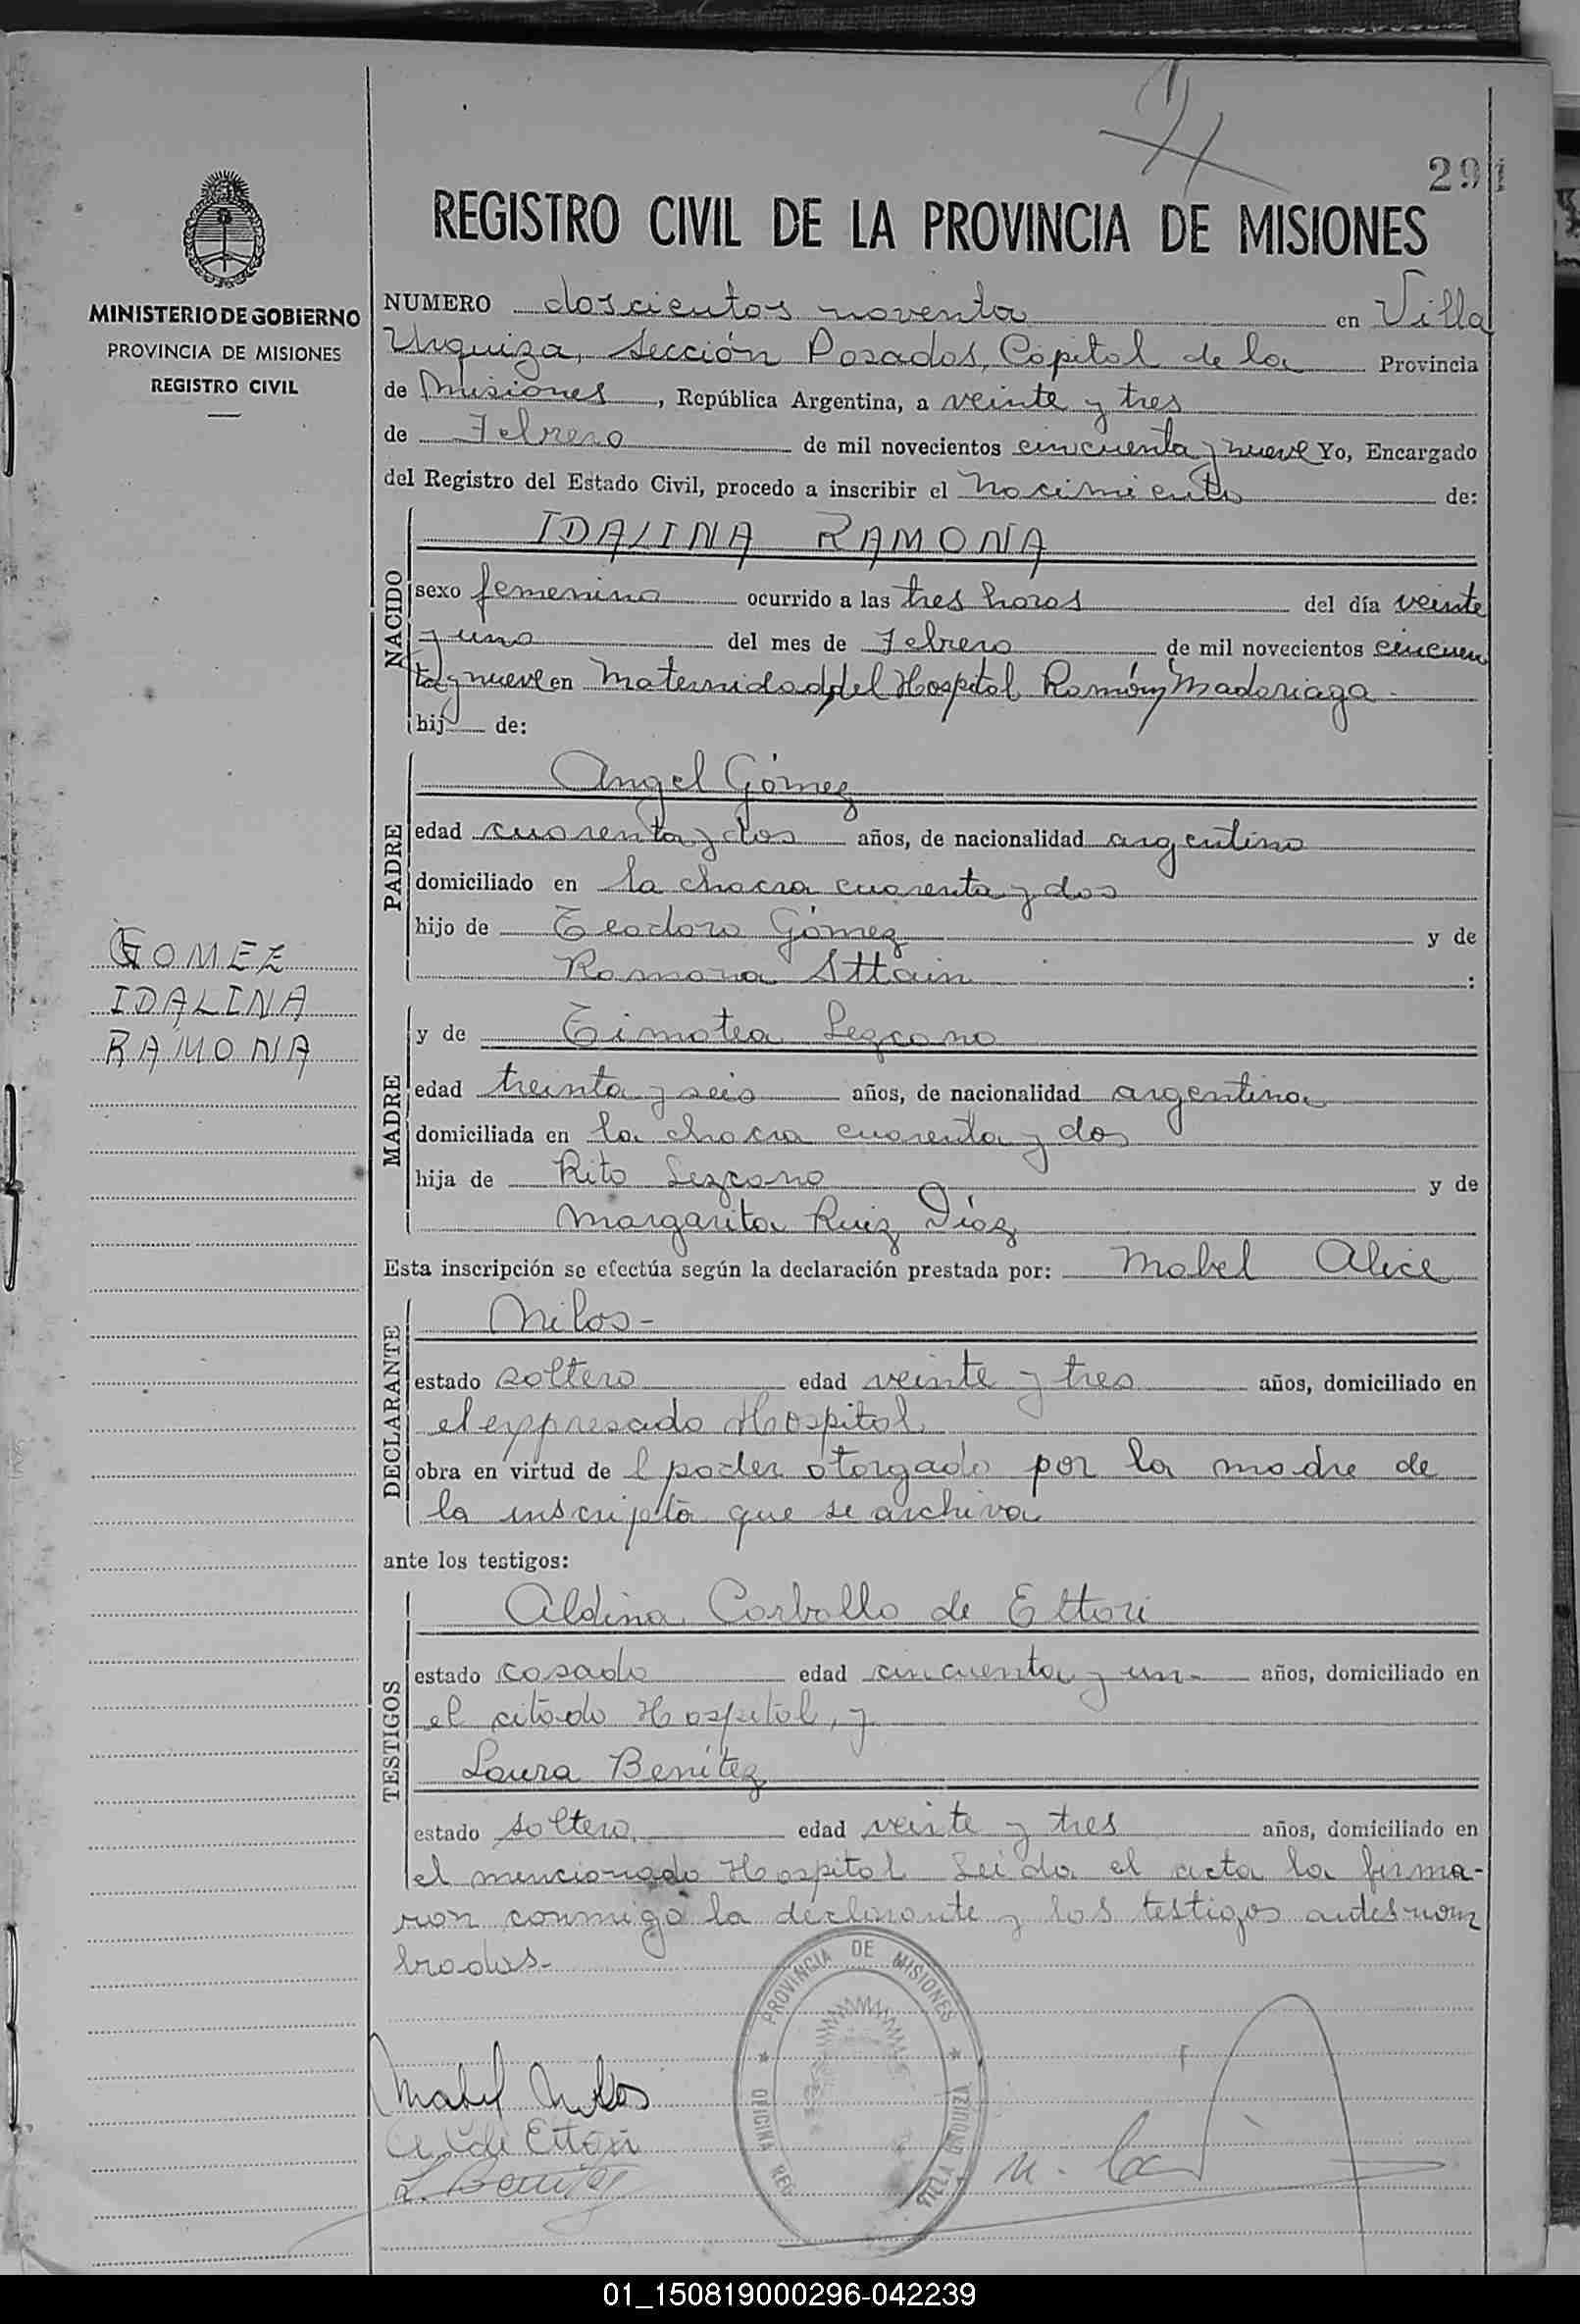 291
REGISTRO CIVIL DE LA PROVINCIA DE MISIONES
MINISTERIO DE GOBIERNO
PROVINCIA DE MISIONES
REGISTRO CIVIL
NUMERO doscientos noventa en Villa
Urquiza, Sección Posadas, Capital de la Provincia
de Misiones, República Argentina, a veinte y tres
de Febrero de mil novecientos cincuenta y nueve Yo, Encargado
del Registro del Estado Civil, procedo a inscribir el Nacimiento de:
NACIDO
IDALINA RAMONA
sexo femenino ocurrido a las tres horas del día veinte
y uno del mes de Febrero de mil novecientos cincuen
ta y nueve en Maternidad del Hospital Ramón Madariaga
hij de:
PADRE
Angel Gómez
edad cuarenta y dos años, de nacionalidad argentino
domiciliado en la chacra cuarenta y dos
hijo de Teodoro Gómez y de
Ramona Attain:
GOMEZ
IDALINA
RAMONA
MADRE
y de Timotea Lezcano
edad treinta y seis años, de nacionalidad argentina
domiciliada en la chacra cuarenta y dos
hija de Rito Lezcano y de
Margarita Ruiz Díaz
Esta inscripción se efectúa según la declaración prestada por: Mabel Alice
DECLARANTE
Milos-
estado soltera edad veinte y tres años, domiciliado en
el expresado Hospital
obra en virtud de l poder otorgado por la madre de
la inscripta que se archiva
ante los testigos:
TESTIGOS
Aldina Carballo de Ettori
estado casada edad cincuenta y un- años, domiciliado en
el citado Hospital, y
Laura Benítez
estado soltera edad veinte y tres años, domiciliado en
el mencionado Hospital Leída el acta la firma-
ron conmigo la declarante y los testigos antes nom
brados-
PROVINCIA DE MISIONES
OFICINA REG.
VILLA URQUIZA
Mabel Milos
A. C. de Ettori
L. Benítez
01_150819000296-042239